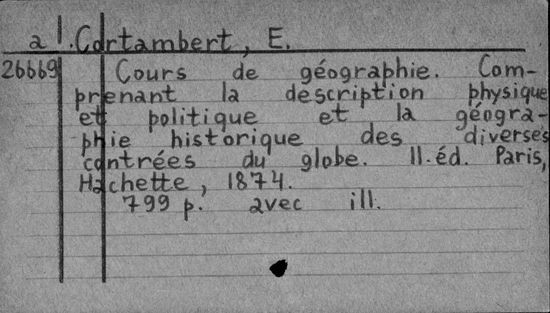 a 1. Cortambert, E.
26669 Cours de géographie. Com-
prenant la description physique
et politique et la géogra-
phie historique des diverses
contrées du globe. 11. éd. Paris,
Hachette, 1874.
799 p. avec ill.